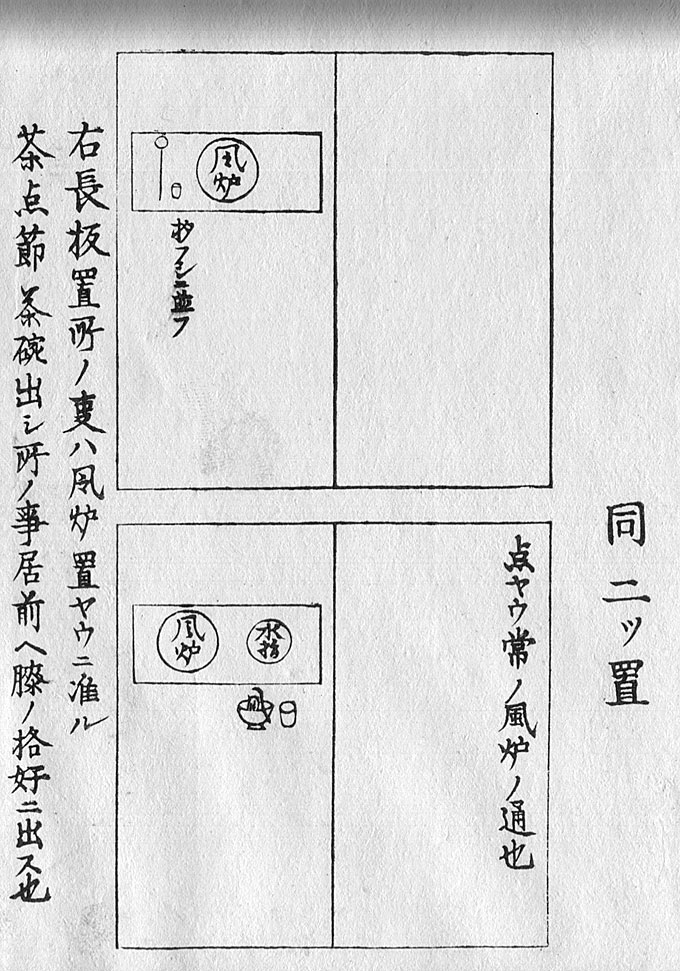 同二ッ置
点ヤウ常ノ風炉ノ通也
風炉
水指
風炉
右長板置所ノ事ハ風炉置ヤウニ准ル
茶点節茶碗出シ所ノ事居前ヘ膝ノ格好ニ出ス也